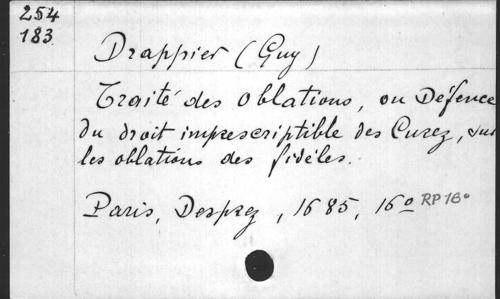 254
183
Drappier (Guy)
Traité des oblations, ou Défence
du droit imprescriptible des Curez, sur
les oblations des fidèles.
Paris, Desprez, 1685, 16º RP 16º